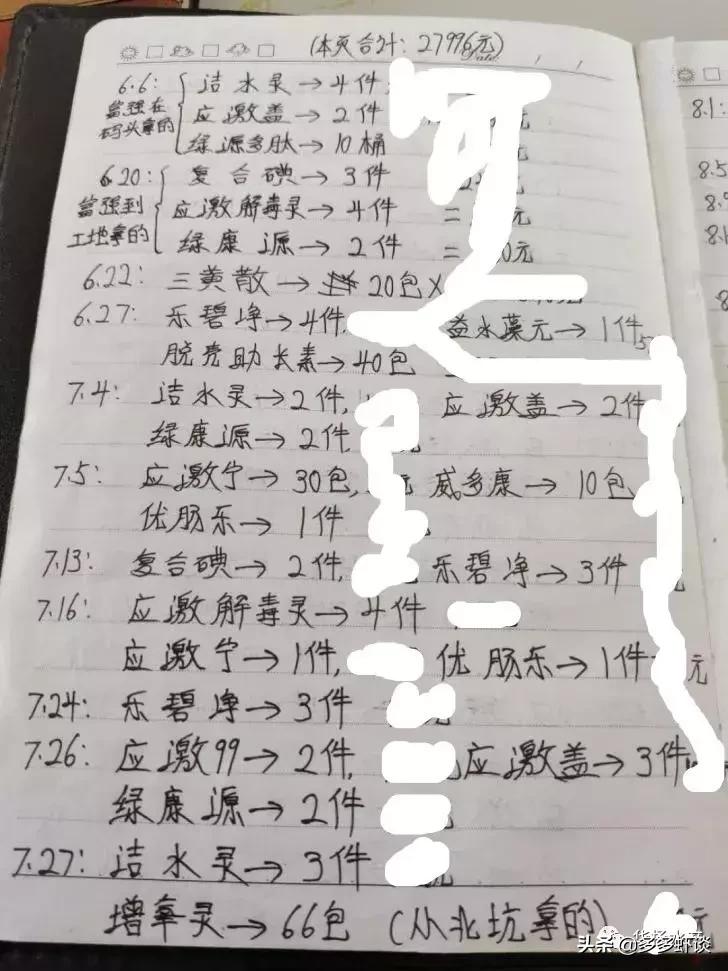 (本页合计: 27996元)
Date
6.6: 洁水灵→4件
富强在码头拿的 应激盖→2件 元
绿源多肽→10桶
6.20: 复合碘→3件
富强到工地拿的 应激解毒灵→4件 = 元
绿康源→2件 = 0元
6.22: 三黄散→ 20包X
6.27: 乐碧净→4件, 益水藻元→1件
脱壳助长素→40包
7.4: 洁水灵→2件, 应激盖→2件
绿康源→2件,
7.5: 应激宁→30包, 元 威多康→10包
优肠乐→1件
7.13: 复合碘→2件, 乐碧净→3件
7.16: 应激解毒灵→4件
应激宁→1件, 优肠乐→1件 元
7.24: 乐碧净→3件
7.26: 应激99→2件, 应激盖→3件
绿康源→2件
7.27: 洁水灵→3件
增草灵→66包 (从北坑拿的) 元
8.1:
8.5
头条 @多多虾谈